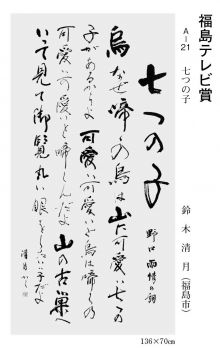 福島テレビ賞
A-21 七つの子
鈴木清月（福島市）
七つの子
野口雨情の詞
烏なぜ啼くの烏は山に可愛い七つの
子があるからよ可愛い可愛いと烏は啼くの
可愛い可愛いと啼くんだよ山の古巣へ
いって見て御覧丸い眼をしたいい子だよ
清月かく
136×70cm